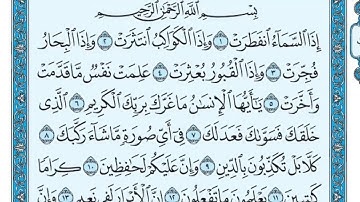 بِسْمِ اللَّهِ الرَّحْمَٰنِ الرَّحِيمِ
إِذَا السَّمَاءُ انفَطَرَتْ ١ وَإِذَا الْكَوَاكِبُ انتَثَرَتْ ٢ وَإِذَا الْبِحَارُ
فُجِّرَتْ ٣ وَإِذَا الْقُبُورُ بُعْثِرَتْ ٤ عَلِمَتْ نَفْسٌ مَّا قَدَّمَتْ
وَأَخَّرَتْ ٥ يَٰٓأَيُّهَا الْإِنسَٰنُ مَا غَرَّكَ بِرَبِّكَ الْكَرِيمِ ٦ الَّذِي
خَلَقَكَ فَسَوَّىٰكَ فَعَدَلَكَ ٧ فِي أَيِّ صُورَةٍ مَّا شَاءَ رَكَّبَكَ ٨
كَلَّا بَلْ تُكَذِّبُونَ بِالدِّينِ ٩ وَإِنَّ عَلَيْكُمْ لَحَٰفِظِينَ ١٠ كِرَامًا
كَٰتِبِينَ ١١ يَعْلَمُونَ مَا تَفْعَلُونَ ١٢ إِنَّ الْأَبْرَارَ لَفِي نَعِيمٍ ١٣ وَإِنَّ